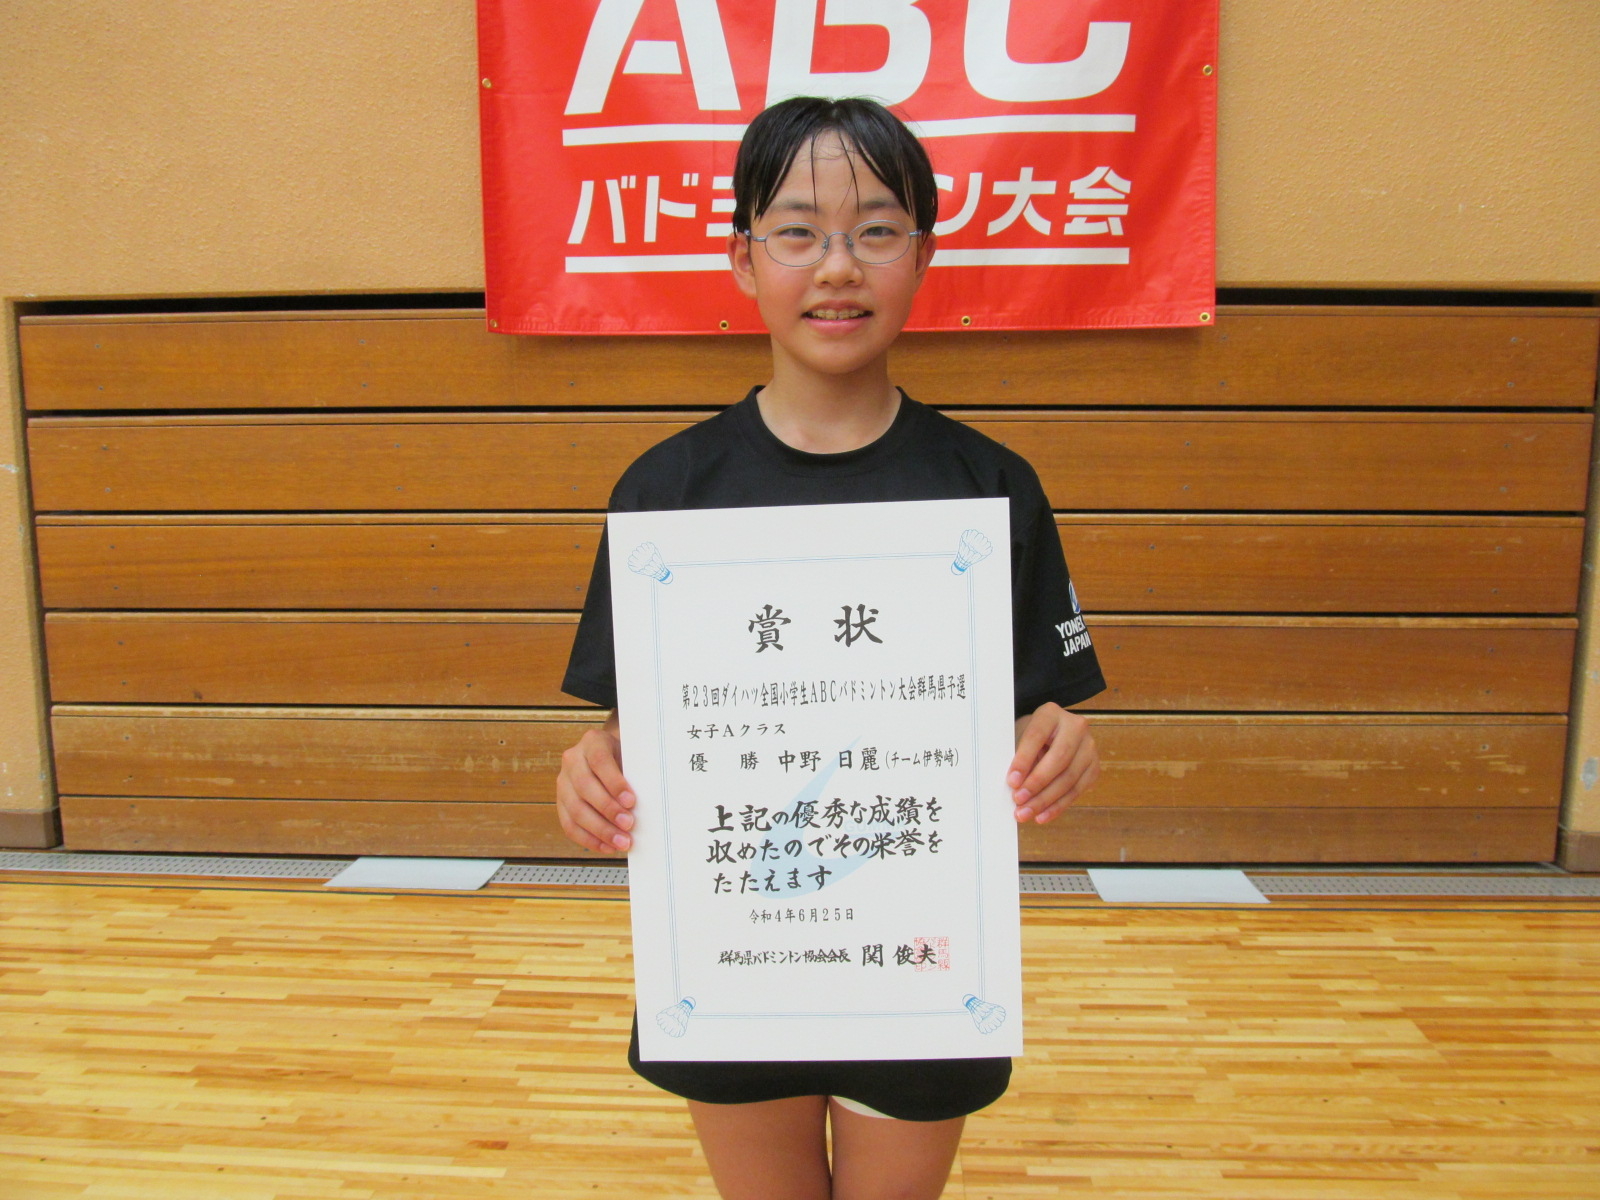 ABC
バドミントン大会
YONEX
JAPAN
賞 状
第23回ダイハツ全国小学生ABCバドミントン大会群馬県予選
女子Aクラス
優 勝 中野 日麗(チーム伊勢崎)
上記の優秀な成績を
収めたのでその栄誉を
たたえます
令和4年6月25日
群馬県バドミントン協会会長 関 俊夫